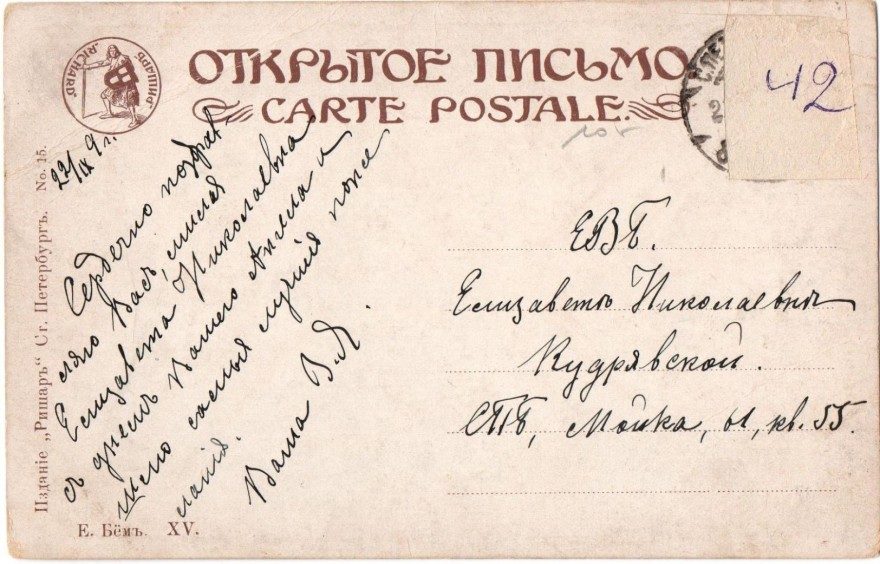 "РИШАРЪ" "RICHARD"
ОТКРЫТОЕ ПИСЬМО
CARTE POSTALE.
42
Изданіе „Ришаръ“ Ст. Петербургъ. No. 15.
Е. Бёмъ. XV.
Сердечно поздрав-
ляю Васъ, милая
Елизавета Николаевна
съ днемъ Вашего Ангела и
шлю самыя лучшія поже
ланія.
Ваша В. Я.
ЕВБ.
Елизаветѣ Николаевнѣ
Кудрявской.
СПБ, Мойка, 61, кв. 55.